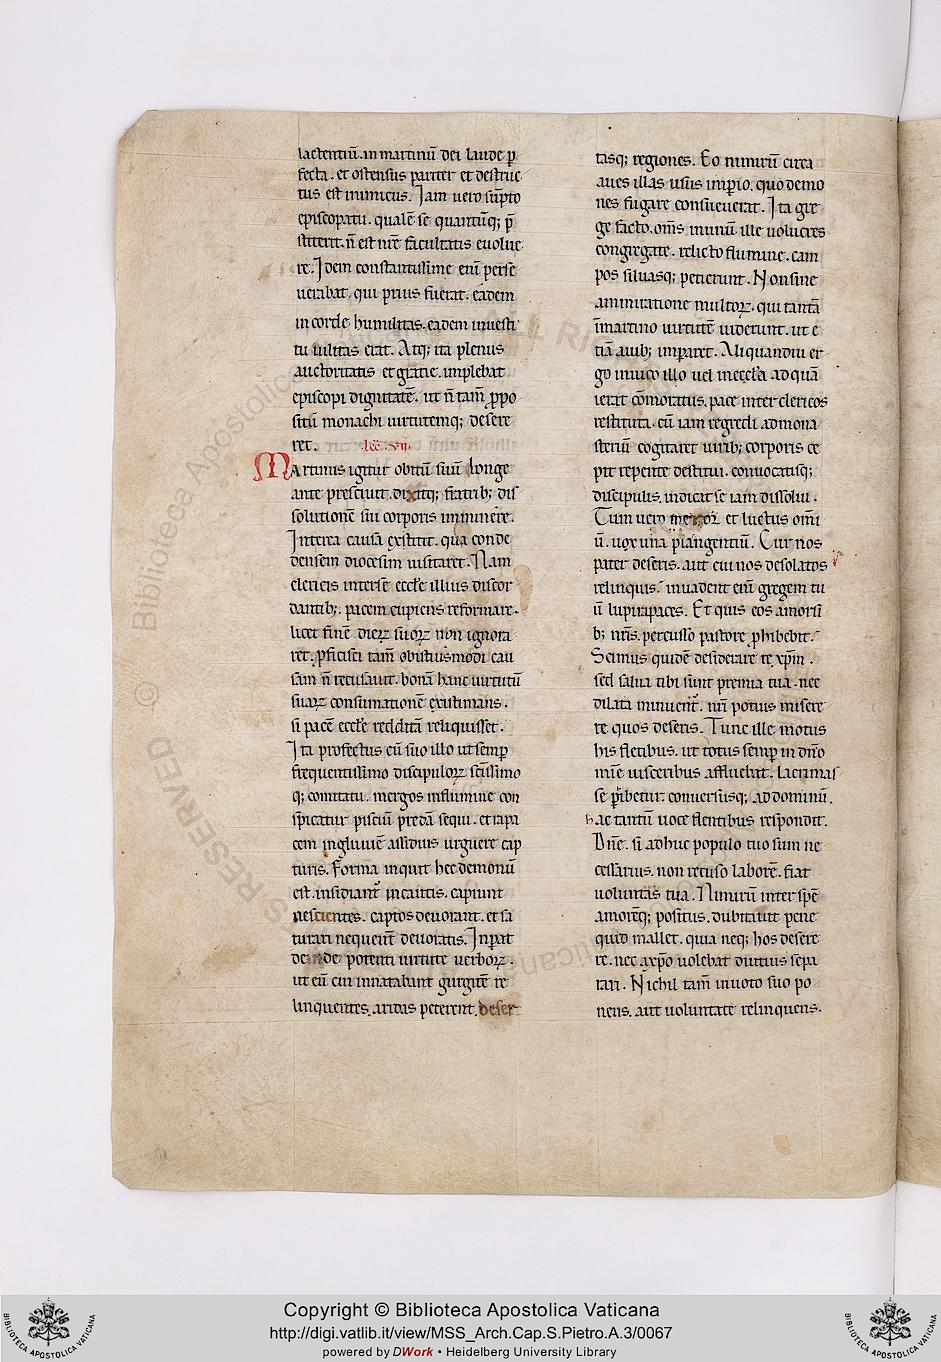 lactentiū. in martinū dei laude p̄
fecta. et ostensus pariter et destruc
tus est inimicus. Jam uero sūpto
episcopatu. qualē se quantūq; p̄
stiterit. n̄ est nr̄e facultatis euolue
re. Jdem constantissime eni᷑ perse
uerabat. qui prius fuerat. eadem
in corde humilitas. eadem inuesti
tu uilitas erat. Atq; ita plenus
auctoritatis et gratie. implebat
episcopi dignitatē. ut n̄ tam̄ ꝓpo
sitū monachi uirtutemq; desere
ret. lec̄ vij.
Martinus igitur obitū suū longe
ante presciuit. dixitq; fratrib; dis
solutionē sui corporis imminere.
Jnterea causa existitit. qua conde
densem diocesim uisitaret. Nam
clericis interse ecclē illius discor
dantib;. pacem cupiens reformare.
licet finē dieꝝ suoꝝ non ignora
ret. ꝓficisci tam̄ obistiusmodi cau
sam n̄ recusauit. bonā hanc uirtutū
suaꝝ consumationē existimans.
si pacē ecclē redditā reliquisset.
Jta profectus cū suo illo ut semp̄
frequentissimo discipuloꝝ sc̄issimo
q; comitatu. mergos influmine con
spicatur pisciū predā sequi. et rapa
cem ingluuiē assiduis urguere cap
turis. Forma inquit hec demonū
est. insidiant᷑ incautis. capiunt
nescientes. captos deuorant. et sa
turari nequeūt deuoratis. Jnpat
deinde potenti uirtute uerboꝝ.
ut eū cui innatabant gurgitē re
linquentes. aridas peterent. deser
tasq; regiones. Eo nimirū circa
aues illas usus imp̄io. quo demo
nes fugare consueuerat. Jta gre
ge facto. om̄s inunū ille uolucres
congregate. relicto flumine. cam
pos siluasq; petierunt. Non sine
ammiratione multoꝝ. qui tantā
īmartino uirtutē uiderunt. ut e
tiā auib; imp̄aret. Aliquandiu er
go inuico illo uel inecclā ad quā
ierat cōmoratus. pace inter clericos
restituta. cū iam regredi ad mona
steriū cogitaret uirib; corporis ce
pit repente destitui. conuocatisq;
discipulis. indicat se iam dissolui.
Tum uero meror et luctus om̄i
ū. uox una plangentiū. Cur nos
pater deseris. aut cui nos desolatos
relinquis. inuadent eni᷑ gregem tu
ū lupi rapaces. Et quis eos amorsi
b; nr̄is. percusso pastore ꝓhibebit.
Scimus quidē desiderare te xp̄m.
sed salua tibi sunt premia tua. nec
dilata minuent᷑. nr̄i potius misere
re quos deseris. Tunc ille motus
his fletibus. ut totus semp̄ in dn̄o
mīe uisceribus affluebat. lacrimas
se p̄ibetur. conuersusq; ad dominū.
hac tantū uoce flentibus respondit.
Dn̄e. si adhuc populo tuo sum ne
cessarius. non recuso laborē. fiat
uoluntas tua. Nimirū inter spē
amorēq; positus. dubitauit pene
quid mallet. quia neq; hos desere
re. nec a xp̄o uolebat diutius sepa
rari. Nichil tam̄ inuoto suo po
nens. aut uoluntate relinquens.
© Biblioteca Apostolica Vaticana
ALL RIGHTS RESERVED
Copyright © Biblioteca Apostolica Vaticana
http://digi.vatlib.it/view/MSS_Arch.Cap.S.Pietro.A.3/0067
powered by DWork • Heidelberg University Library
BIBLIOTECA APOSTOLICA VATICANA
BIBLIOTECA APOSTOLICA VATICANA